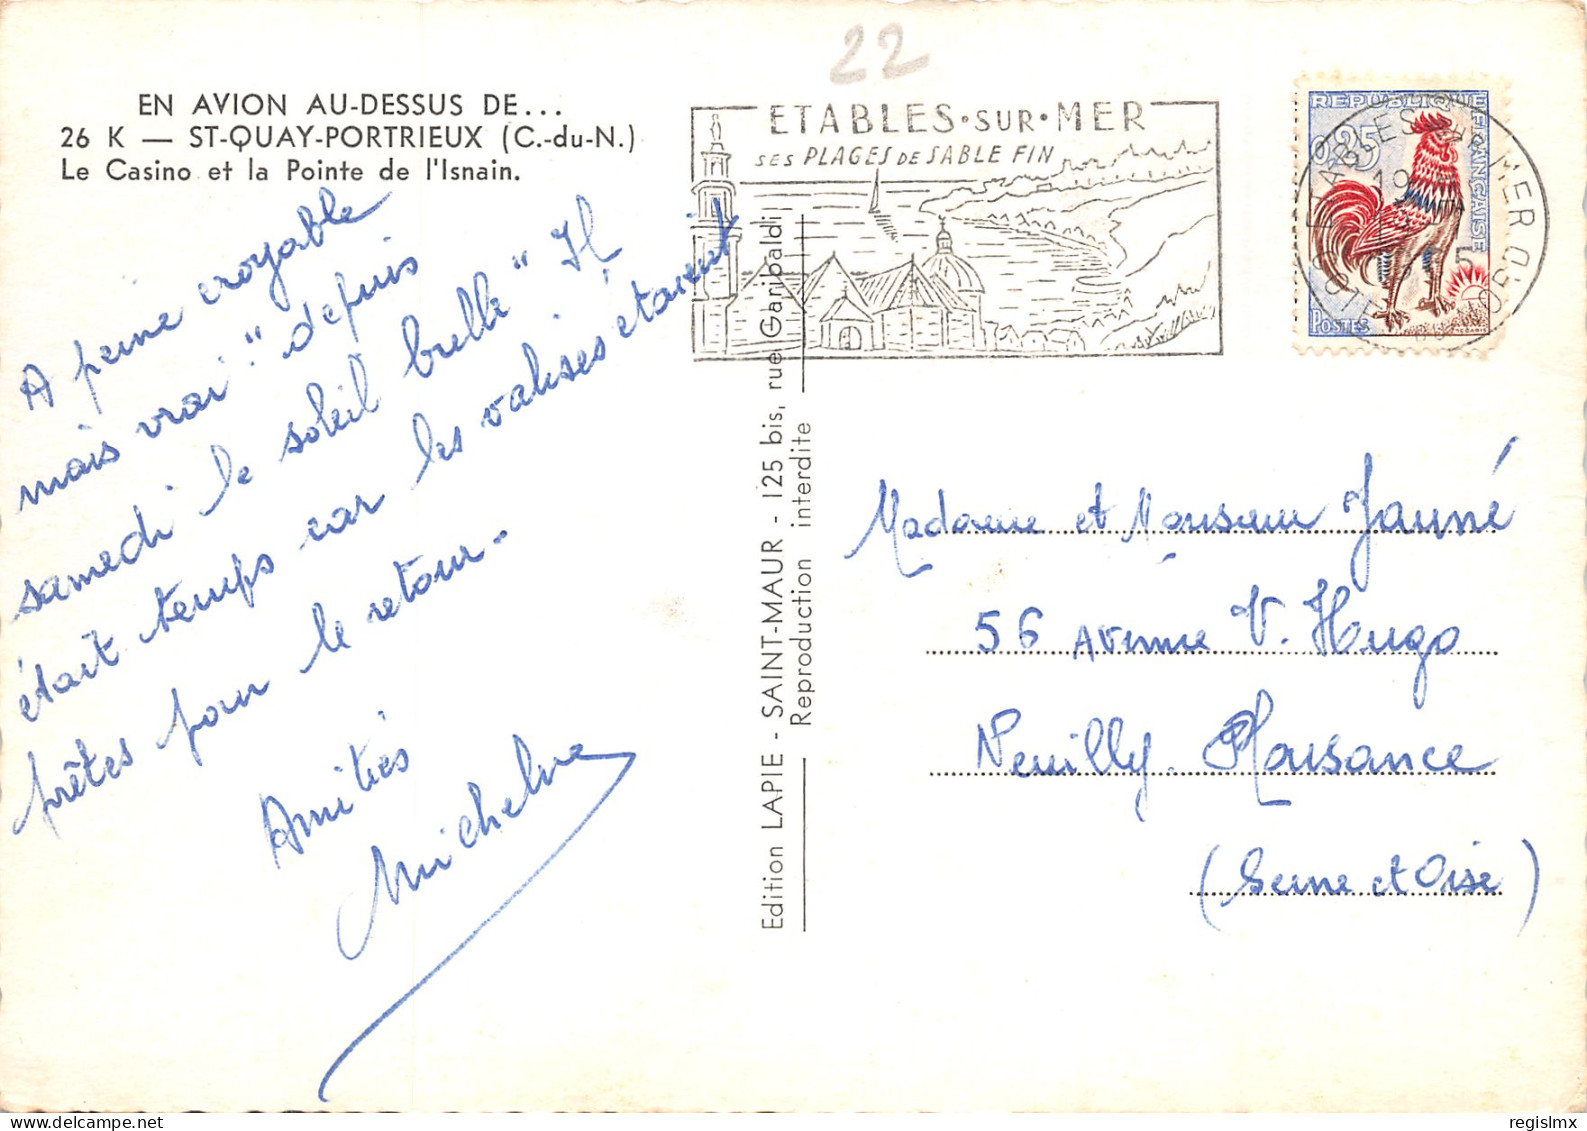 22
EN AVION AU-DESSUS DE...
26 K — ST-QUAY-PORTRIEUX (C.-du-N.)
Le Casino et la Pointe de l'Isnain.
A peine croyable
mais vrai : " depuis
samedi le soleil brille " Il
était temps car les valises étaient
prêtes pour le retour.
Amitiés
Micheline
Edition LAPIE - SAINT-MAUR - 125 bis, rue Garibaldi
Reproduction interdite
ETABLES·SUR·MER
SES PLAGES DE SABLE FIN
REPUBLIQUE FRANÇAISE
0,25
POSTES
ETABLES SUR MER
COTES DU NORD
Madame et Monsieur Jauné
56 Avenue V. Hugo
Neuilly-Plaisance
(Seine et Oise)
regislmx